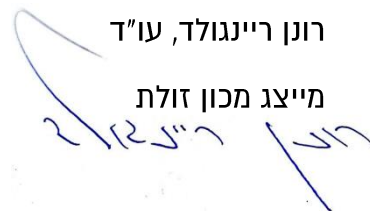 רונן ריינגולד, עו״ד
מייצג מכון זולת
רונן ריינגולד